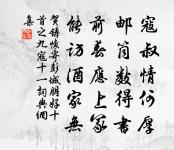 寇叔情何厚
郵筒數得書
前春應上冢
能訪酒家無
賀鑄懷寄彭城朋好十
首之九寇十一詞典網
集